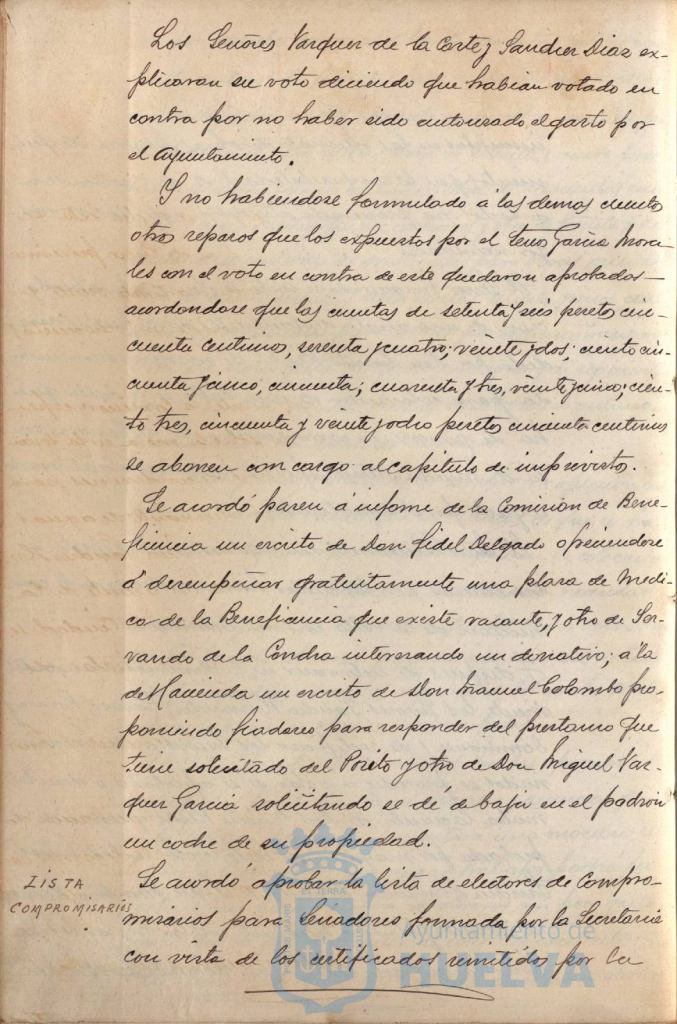 Los Señores Vazquez de la Corte y Sanchez Diaz ex-
plicaron su voto diciendo que habian votado en
contra por no haber sido autorizado el gasto por
el Ayuntamiento.
Y no habiendose formulado á las demas cuentas
otros reparos que los expuestos por el Señor Garcia Mora-
les con el voto en contra de este quedaron aprobadas
acordandose que las cuentas de setenta y seis pesetas cin-
cuenta centimos, sesenta y cuatro; veinte y dos; ciento cin-
cuenta y cinco, cincuenta; cuarenta y tres, veinte y cinco; cien-
to tres, cincuenta y veinte y ocho pesetas cincuenta centimos
se abonen con cargo al capitulo de imprevistos.
Se acordó pasen á informe de la Comision de Bene-
ficencia un escrito de Don Fidel Delgado ofreciendose
á desempeñar gratuitamente una plaza de Medi-
co de la Beneficencia que existe vacante, y otro de Ser-
vando de la Concha interesando un donativo; á la
de Hacienda un escrito de Don Manuel Colombo pro-
poniendo fiadores para responder del prestamo que
tiene solicitado del Posito y otro de Don Miguel Vaz-
quez Garcia solicitando se dé de baja en el padron
un coche de su propiedad.
LISTA
COMPROMISARIOS
Se acordó aprobar la lista de electores de Compro-
misarios para Senadores formada por la Secretaria
con vista de los certificados remitidos por la
Ayuntamiento de
HUELVA